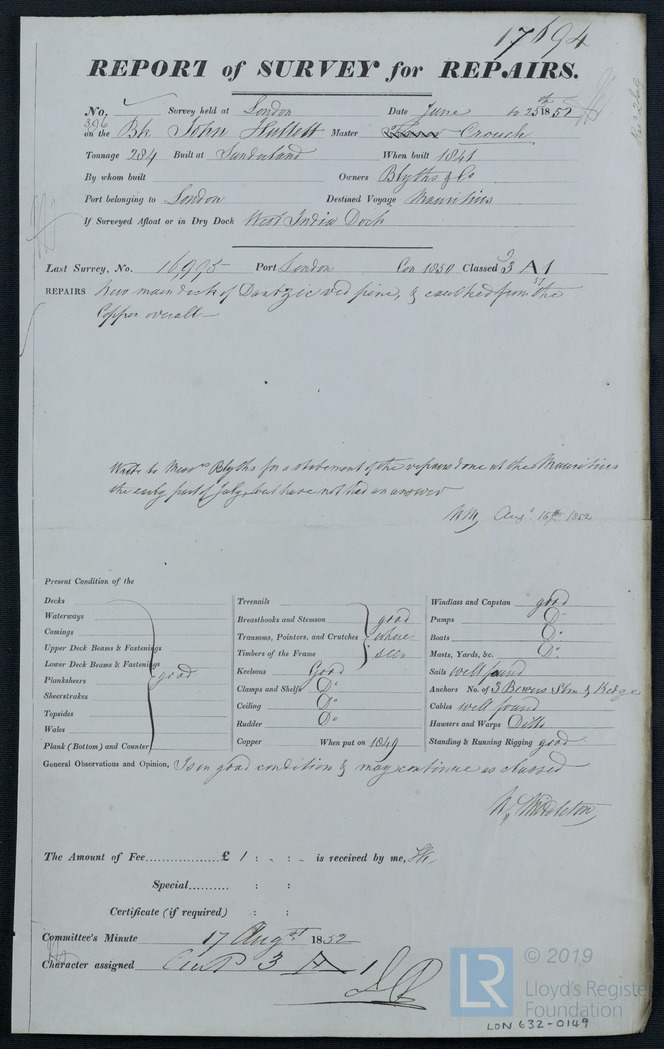 17694
REPORT of SURVEY for REPAIRS.
No. Survey held at London Date June to 25th 1852
396
on the Bk John Hullett Master Crouch
Tonnage 284 Built at Sunderland When built 1841
By whom built Owners Blyths & Co
Port belonging to London Destined Voyage Mauritius
If Surveyed Afloat or in Dry Dock West India Dock
Last Survey, No. 16,995 Port London Con 1850 Classed 3 A 1
REPAIRS New main deck of Dantzic red pine, & caulked from the
Copper overall
Wrote to Messrs Blyths for a statement of the repairs done at the Mauritius
the early part of July, but have not had an answer
Augt 16th 1852
Present Condition of the
Decks
Waterways
Comings
Upper Deck Beams & Fastenings
Lower Deck Beams & Fastenings
Planksheers good
Sheerstrakes
Topsides
Wales
Plank (Bottom) and Counter
Treenails
Breasthooks and Stemson good
Transoms, Pointers, and Crutches where
Timbers of the Frame seen
Keelsons Good
Clamps and Shelfs Do
Ceiling Do
Rudder Do
Copper When put on 1849
Windlass and Capstan good
Pumps Do
Boats Do
Masts, Yards, &c. Do
Sails well found
Anchors No. of 3 Bowers Strm & Kedge
Cables well found
Hawsers and Warps Ditto
Standing & Running Rigging good
General Observations and Opinion, Is in good condition & may continue as classed
W. Middleton
The Amount of Fee............... £ 1 : - : - is received by me,
Special.......... : :
Certificate (if required) : :
Committee's Minute 17 Augst 1852
Character assigned 3 A 1
LR
© 2019
Lloyd's Register
Foundation
LON 632-0149